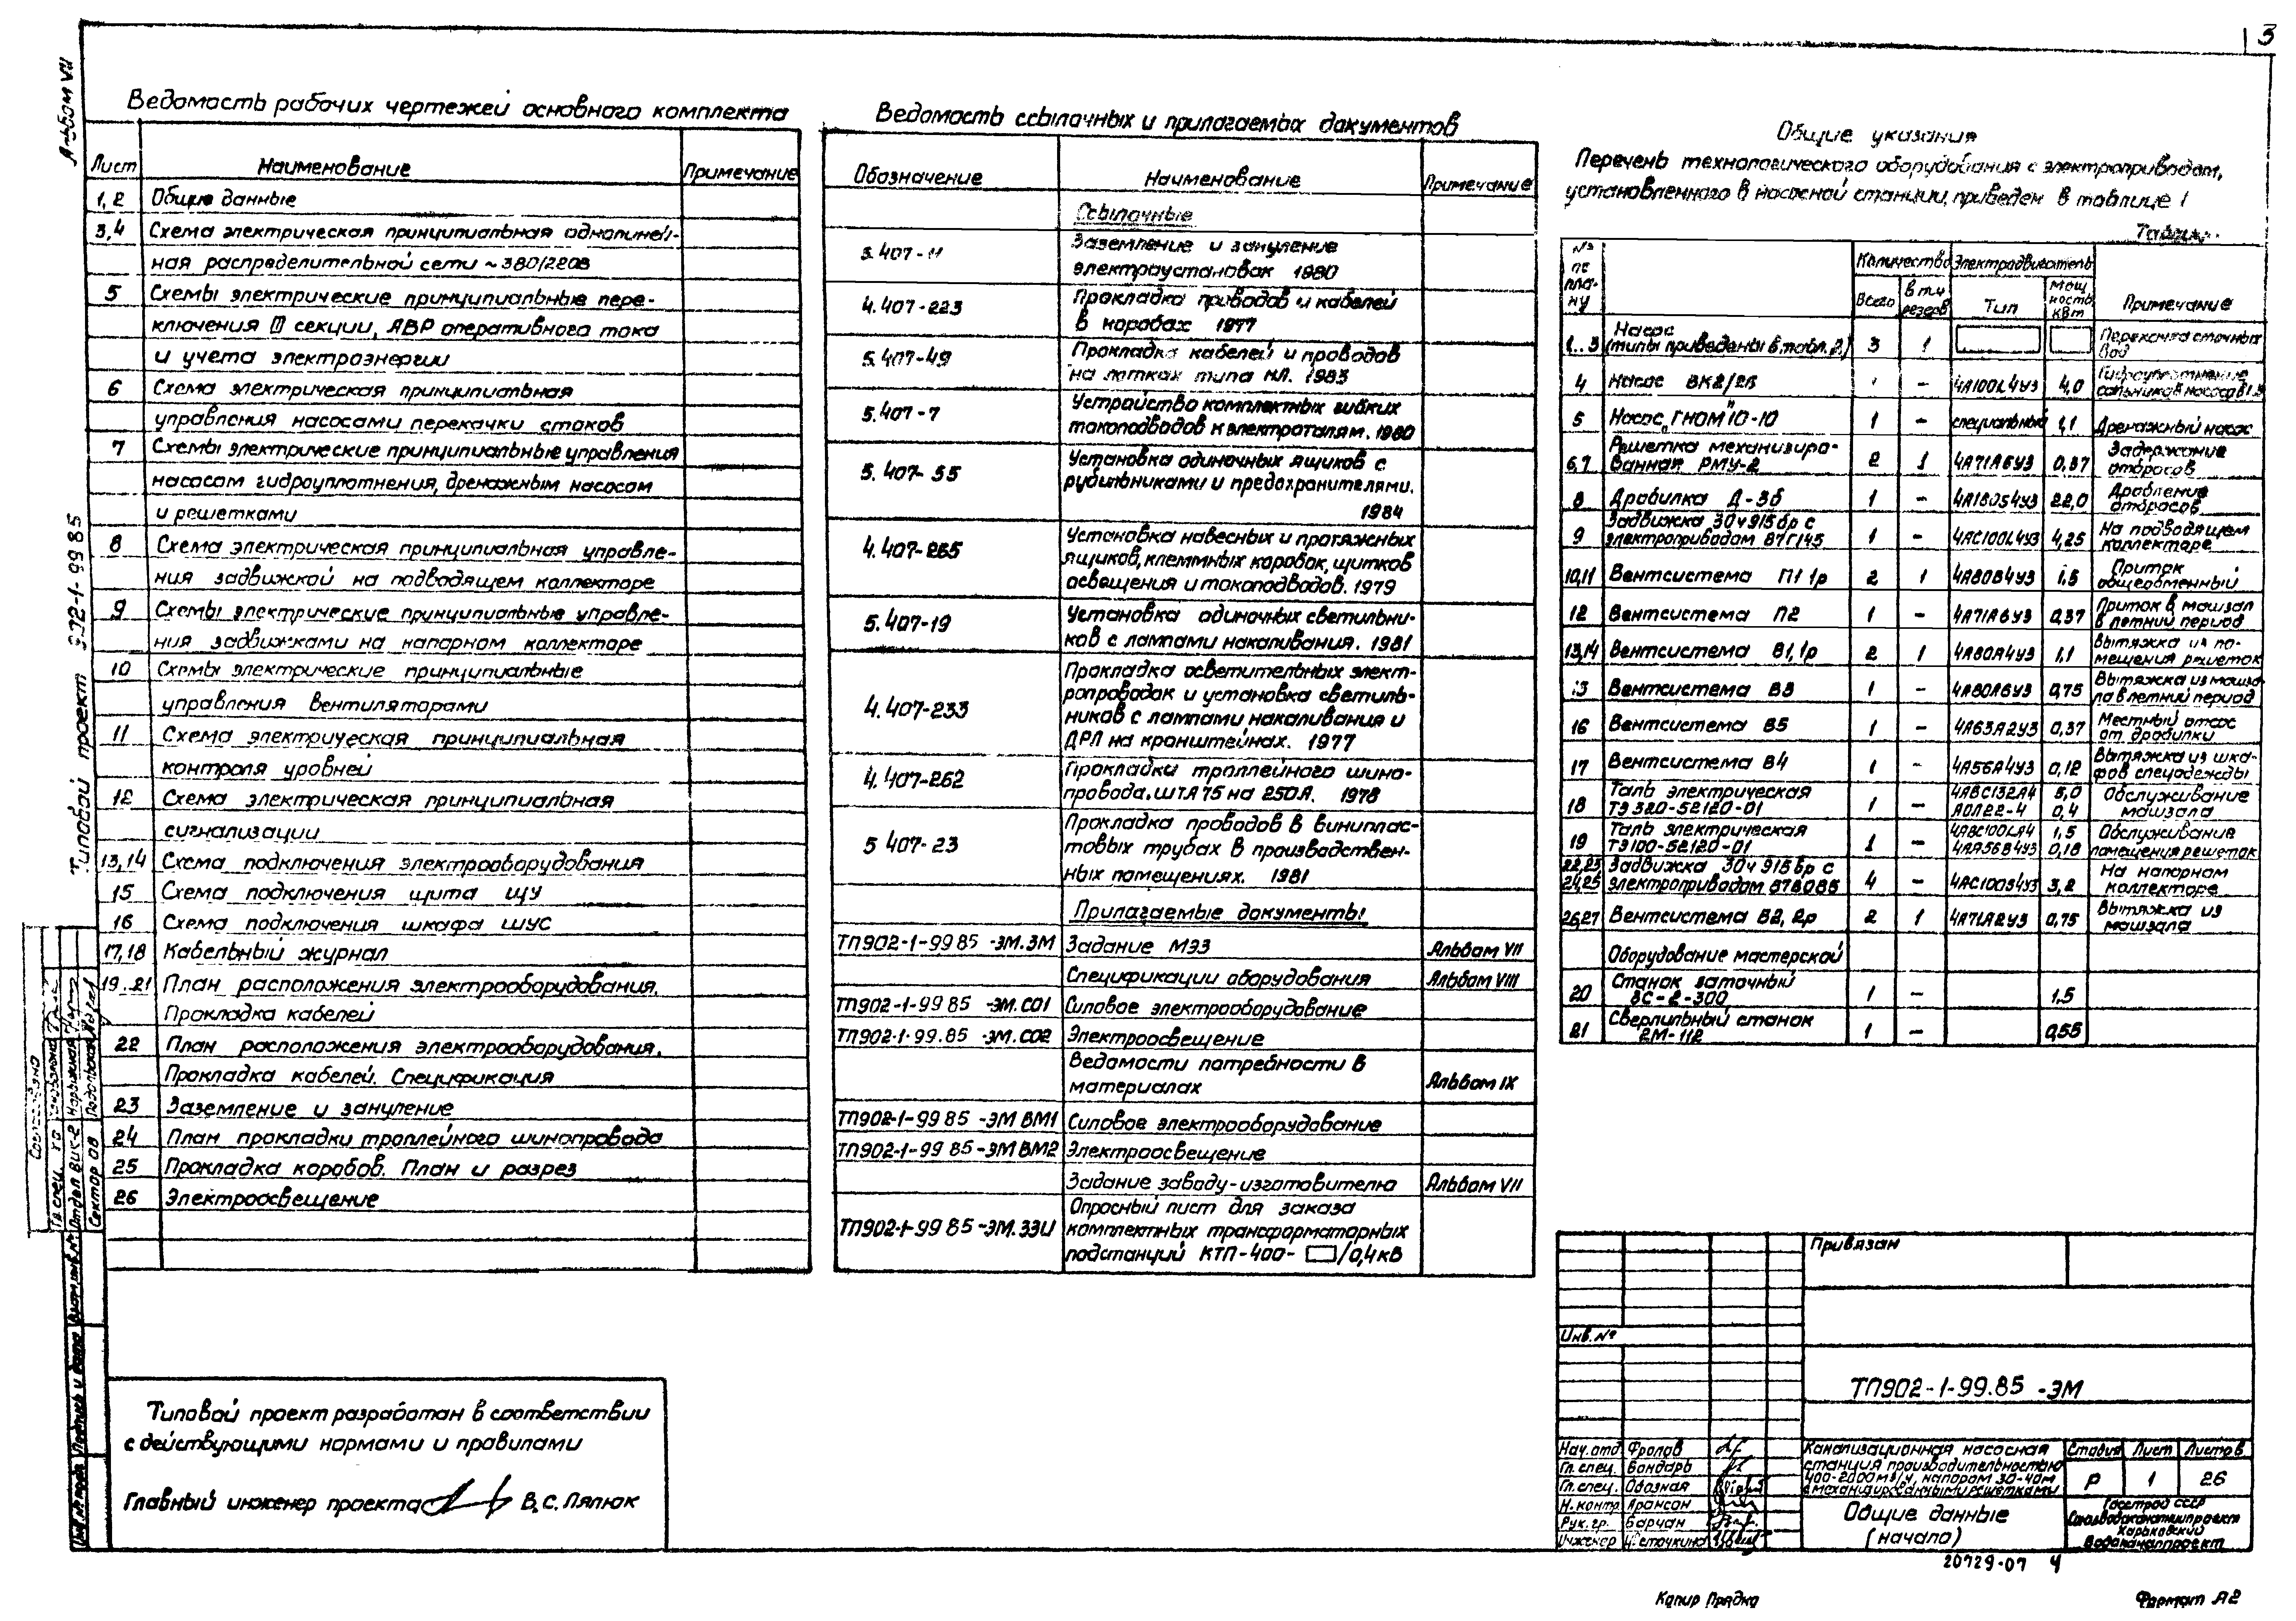 3
Альбом VII
Типовой проект 902-1-99 85
Ведомость рабочих чертежей основного комплекта
Лист Наименование Примечание
1,2 Общие данные
3,4 Схема электрическая принципиальная однолиней-
ная распределительной сети ~380/220В
5 Схемы электрические принципиальные пере-
ключения III секции, АВР оперативного тока
и учета электроэнергии
6 Схема электрическая принципиальная
управления насосами перекачки стоков
7 Схемы электрические принципиальные управления
насосом гидроуплотнения, дренажным насосом
и решетками
8 Схема электрическая принципиальная управле-
ния задвижкой на подводящем коллекторе
9 Схемы электрические принципиальные управле-
ния задвижками на напорном коллекторе
10 Схемы электрические принципиальные
управления вентиляторами
11 Схема электрическая принципиальная
контроля уровней
12 Схема электрическая принципиальная
сигнализации
13,14 Схема подключения электрооборудования
15 Схема подключения щита ЩУ
16 Схема подключения шкафа ШУС
17,18 Кабельный журнал
19..21 План расположения электрооборудования.
Прокладка кабелей
22 План расположения электрооборудования.
Прокладка кабелей. Спецификация
23 Заземление и зануление
24 План прокладки троллейного шинопровода
25 Прокладка коробов. План и разрез
26 Электроосвещение
Типовой проект разработан в соответствии
с действующими нормами и правилами
Главный инженер проекта В.С. Ляпюк
Ведомость ссылочных и прилагаемых документов
Обозначение Наименование Примечание
Ссылочные
5.407-11 Заземление и зануление
электроустановок 1980
4.407-223 Прокладка проводов и кабелей
в коробах 1977
5.407-49 Прокладка кабелей и проводов
на лотках типа НЛ. 1983
5.407-7 Устройство комплектных гибких
токоподводов к электроталям. 1980
5.407-55 Установка одиночных ящиков с
рубильниками и предохранителями.
1984
4.407-265 Установка навесных и протяжных
ящиков, клеммных коробок, щитков
освещения и токоподводов. 1979
5.407-19 Установка одиночных светильни-
ков с лампами накаливания. 1981
4.407-233 Прокладка осветительных элект-
ропроводок и установка светиль-
ников с лампами накаливания и
ДРЛ на кронштейнах. 1977
4.407-262 Прокладка троллейного шино-
провода ШТА75 на 250А. 1978
5 407-23 Прокладка проводов в винипlas-
товых трубах в производствен-
ных помещениях. 1981
Прилагаемые документы
ТП902-1-99 85 -ЭМ.ЗМ Задание МЭЗ Альбом VII
Спецификации оборудования Альбом VIII
ТП902-1-99 85 -ЭМ.СО1 Силовое электрооборудование
ТП902-1-99.85 -ЭМ.СО2 Электроосвещение
Ведомости потребности в
материалах Альбом IX
ТП902-1-99 85 -ЭМ ВМ1 Силовое электрооборудование
ТП902-1-99 85 -ЭМ ВМ2 Электроосвещение
Задание заводу-изготовителю Альбом VII
ТП902-1-99 85 -ЭМ.ЗЗИ Опросный лист для заказа
комплектных трансформаторных
подстанций КТП-400- /0,4кВ
Общие указания
Перечень технологического оборудования с электроприводом,
установленного в насосной станции, приведен в таблице 1
№ по плану Количество Электродвигатель Примечание
Всего в т.ч резерв Тип мощность кВт
1..3 Насос (типы приведены в табл. 2) 3 1 Перекачка сточных вод
4 Насос ВК2/26 - 4А100L4У3 4,0 Гидроуплотнение сальников насосов 1..3
5 Насос „ГНОМ" 10-10 1 - специальный 1,1 Дренажный насос
6,7 Решетка механизиро-ванная РМУ-2 2 1 4А71А6У3 0,37 Задержание отбросов
8 Дробилка Д-3б 1 - 4А180S4У3 22,0 Дробление отбросов
9 Задвижка 30ч915бр с электроприводом 87Г145 1 - 4АС100L4У3 4,25 На подводящем коллекторе
10,11 Вентсистема П1 1р 2 1 4А80В4У3 1,5 Приток общеобменный
12 Вентсистема П2 1 - 4А71А6У3 0,37 Приток в машзал в летний период
13,14 Вентсистема В1, 1р 2 1 4А80А4У3 1,1 Вытяжка из по-мещения решеток
15 Вентсистема В3 1 - 4А80А6У3 0,75 Вытяжка из машза-ла в летний период
16 Вентсистема В5 1 - 4А63А2У3 0,37 Местный отсос от дробилки
17 Вентсистема В4 1 - 4А56А4У3 0,12 Вытяжка из шка-фов спецодежды
18 Таль электрическая ТЭ 320-52120-01 1 - 4АВС132А4 5,0 Обслуживание
АОЛ22-4 0,4 машзала
19 Таль электрическая ТЭ100-52120-01 1 - 4АВС100LА4 1,5 Обслуживание
4АА56В4У3 0,18 помещения решеток
22,23 24,25 Задвижка 30ч915бр с электроприводом 87В085 4 - 4АС100S4У3 3,2 На напорном коллекторе
26,27 Вентсистема В2, 2р 2 1 4А71А2У3 0,75 Вытяжка из машзала
Оборудование мастерской
20 Станок заточный ЗС-2-300 1 - 1,5
21 Сверлильный станок 2М-112 1 - 0,55
Привязан
Инв. №
ТП902-1-99.85 -ЭМ
Нач. отд Фролов
Гл. спец. Бондарь
Гл. спец.
Н. контр. Аронсон
Рук. гр. Барчан
Инженер
Канализационная насосная
станция производительностью
400-2000м3/ч, напором 30-40м
с механизированными решетками
Стадия Лист Листов
Р 1 26
Общие данные
(начало)
Госстрой СССР
Союзводоканалниипроект
Харьковский
Водоканалпроект
20729-07 4
Копир Прядко Формат А2
Гл. спец.
Отдел ВиК-2
Сектор ОВ
Взам. инв. №
Подпись и дата
Инв. № подл.